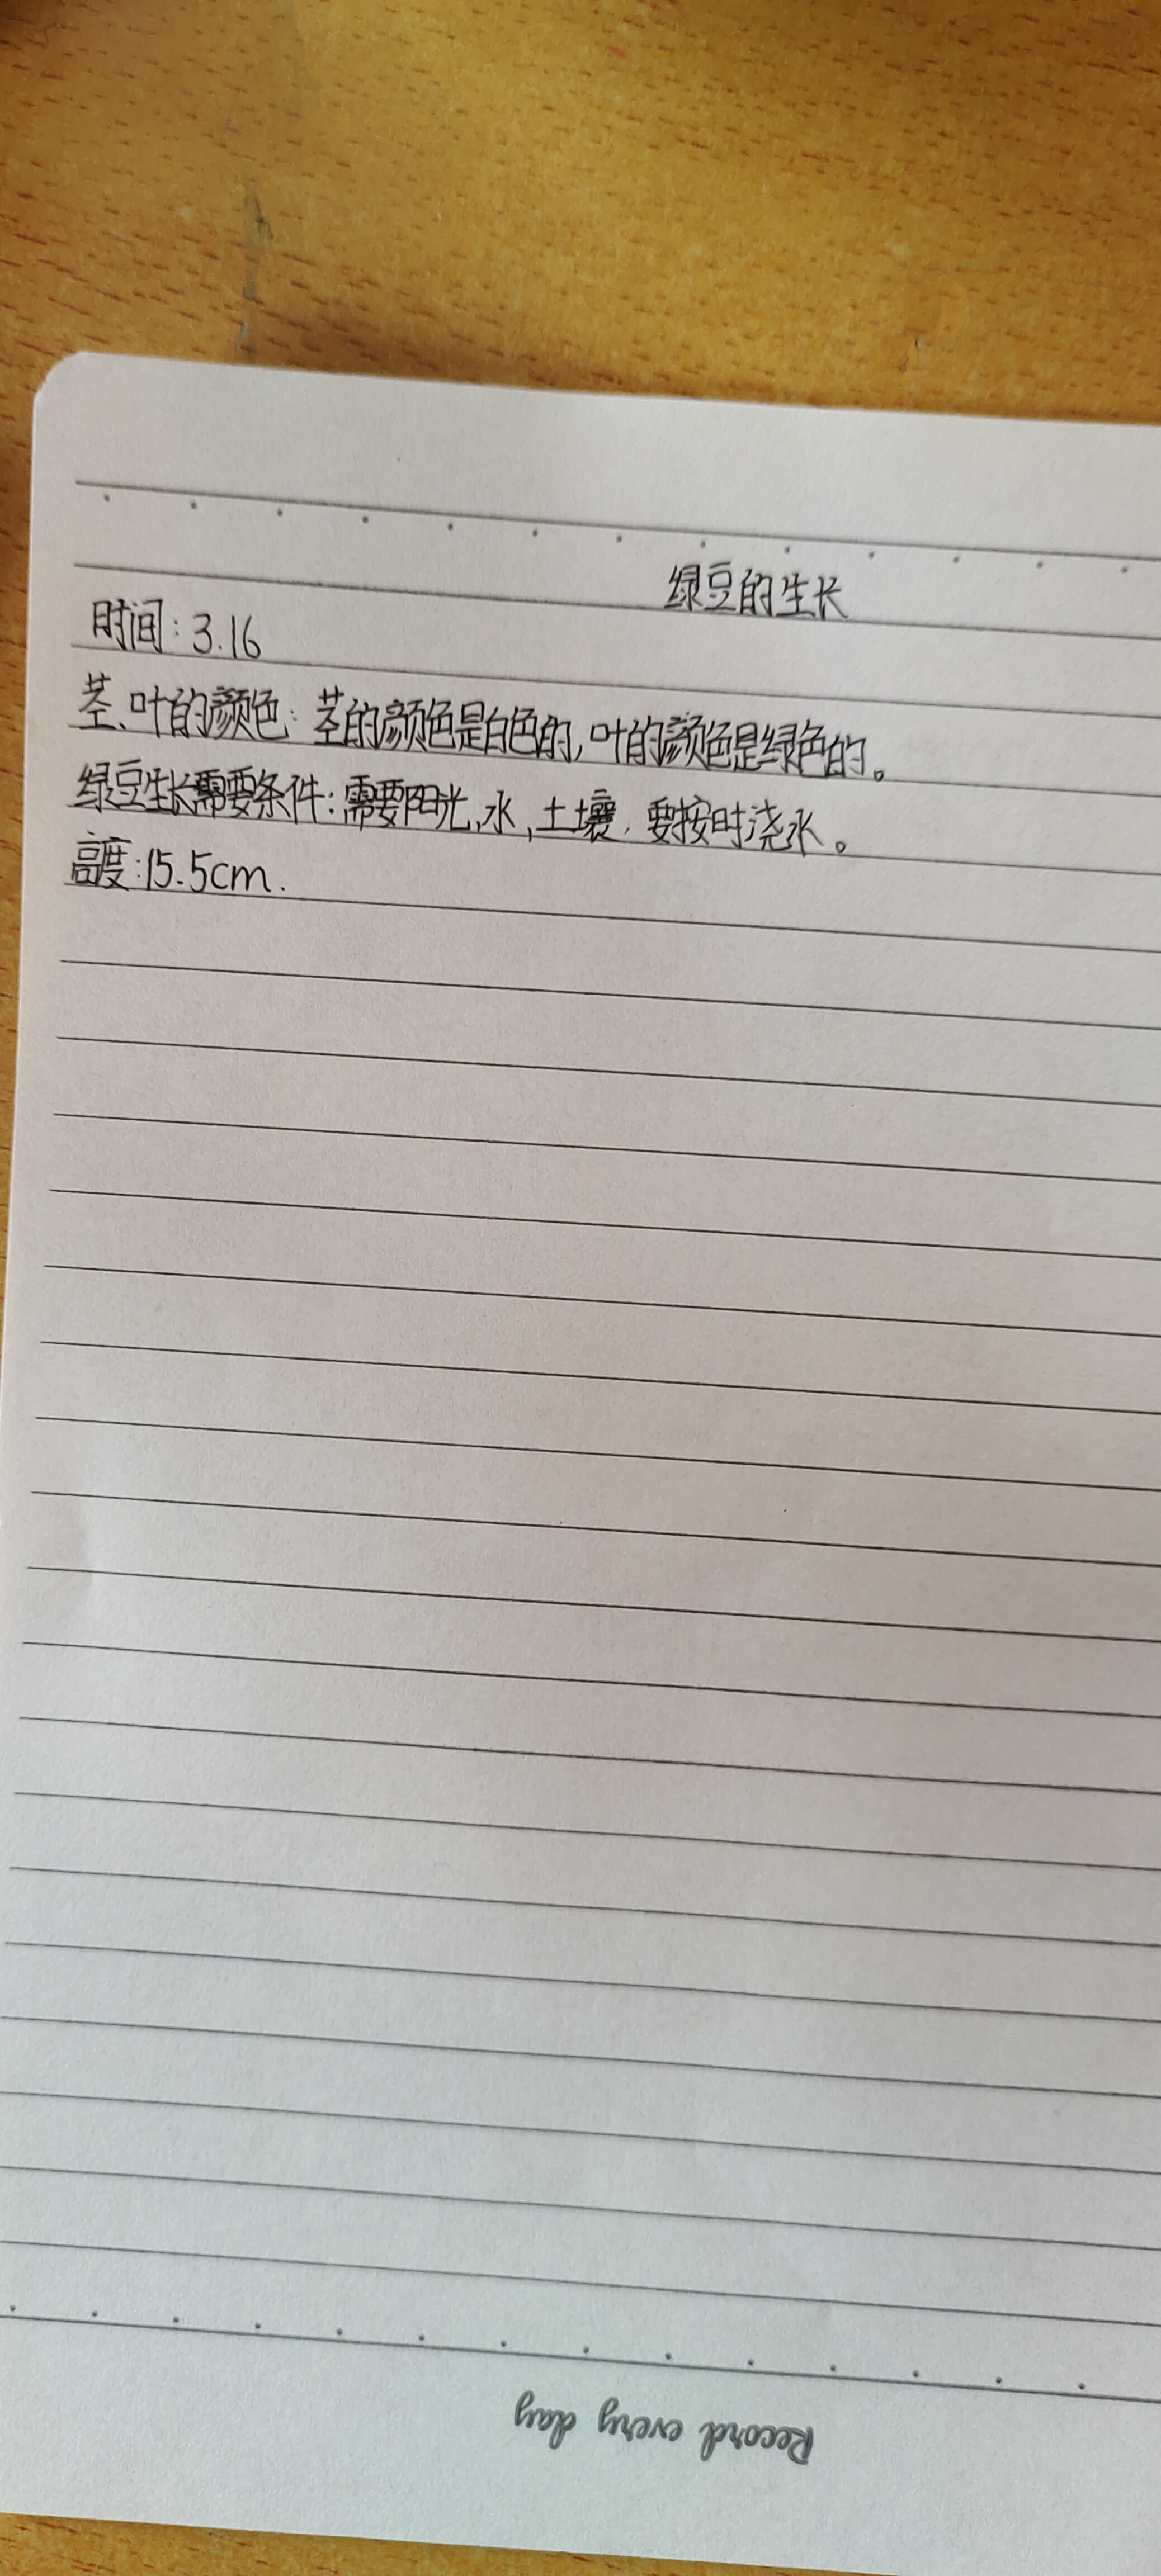 绿豆的生长
时间:3.16
茎、叶的颜色:茎的颜色是白色的,叶的颜色是绿色的。
绿豆生长需要条件:需要阳光,水,土壤,要按时浇水。
高度:15.5cm.
Record every day